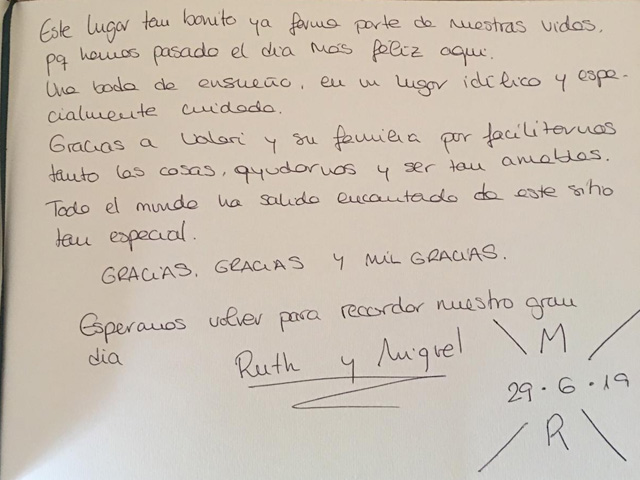 Este lugar tan bonito ya forma parte de nuestras vidas,
pq hemos pasado el dia más feliz aqui.
Una boda de ensueño, en un lugar idílico y espe-
cialmente cuidado.
Gracias a Valeri y su familia por facilitarnos
tanto las cosas, ayudarnos y ser tan amables.
Todo el mundo ha salido encantado de este sitio
tan especial.
GRACIAS, GRACIAS Y MIL GRACIAS.
Esperamos volver para recordar nuestro gran
dia
Ruth y Miguel
M
29·6·19
R